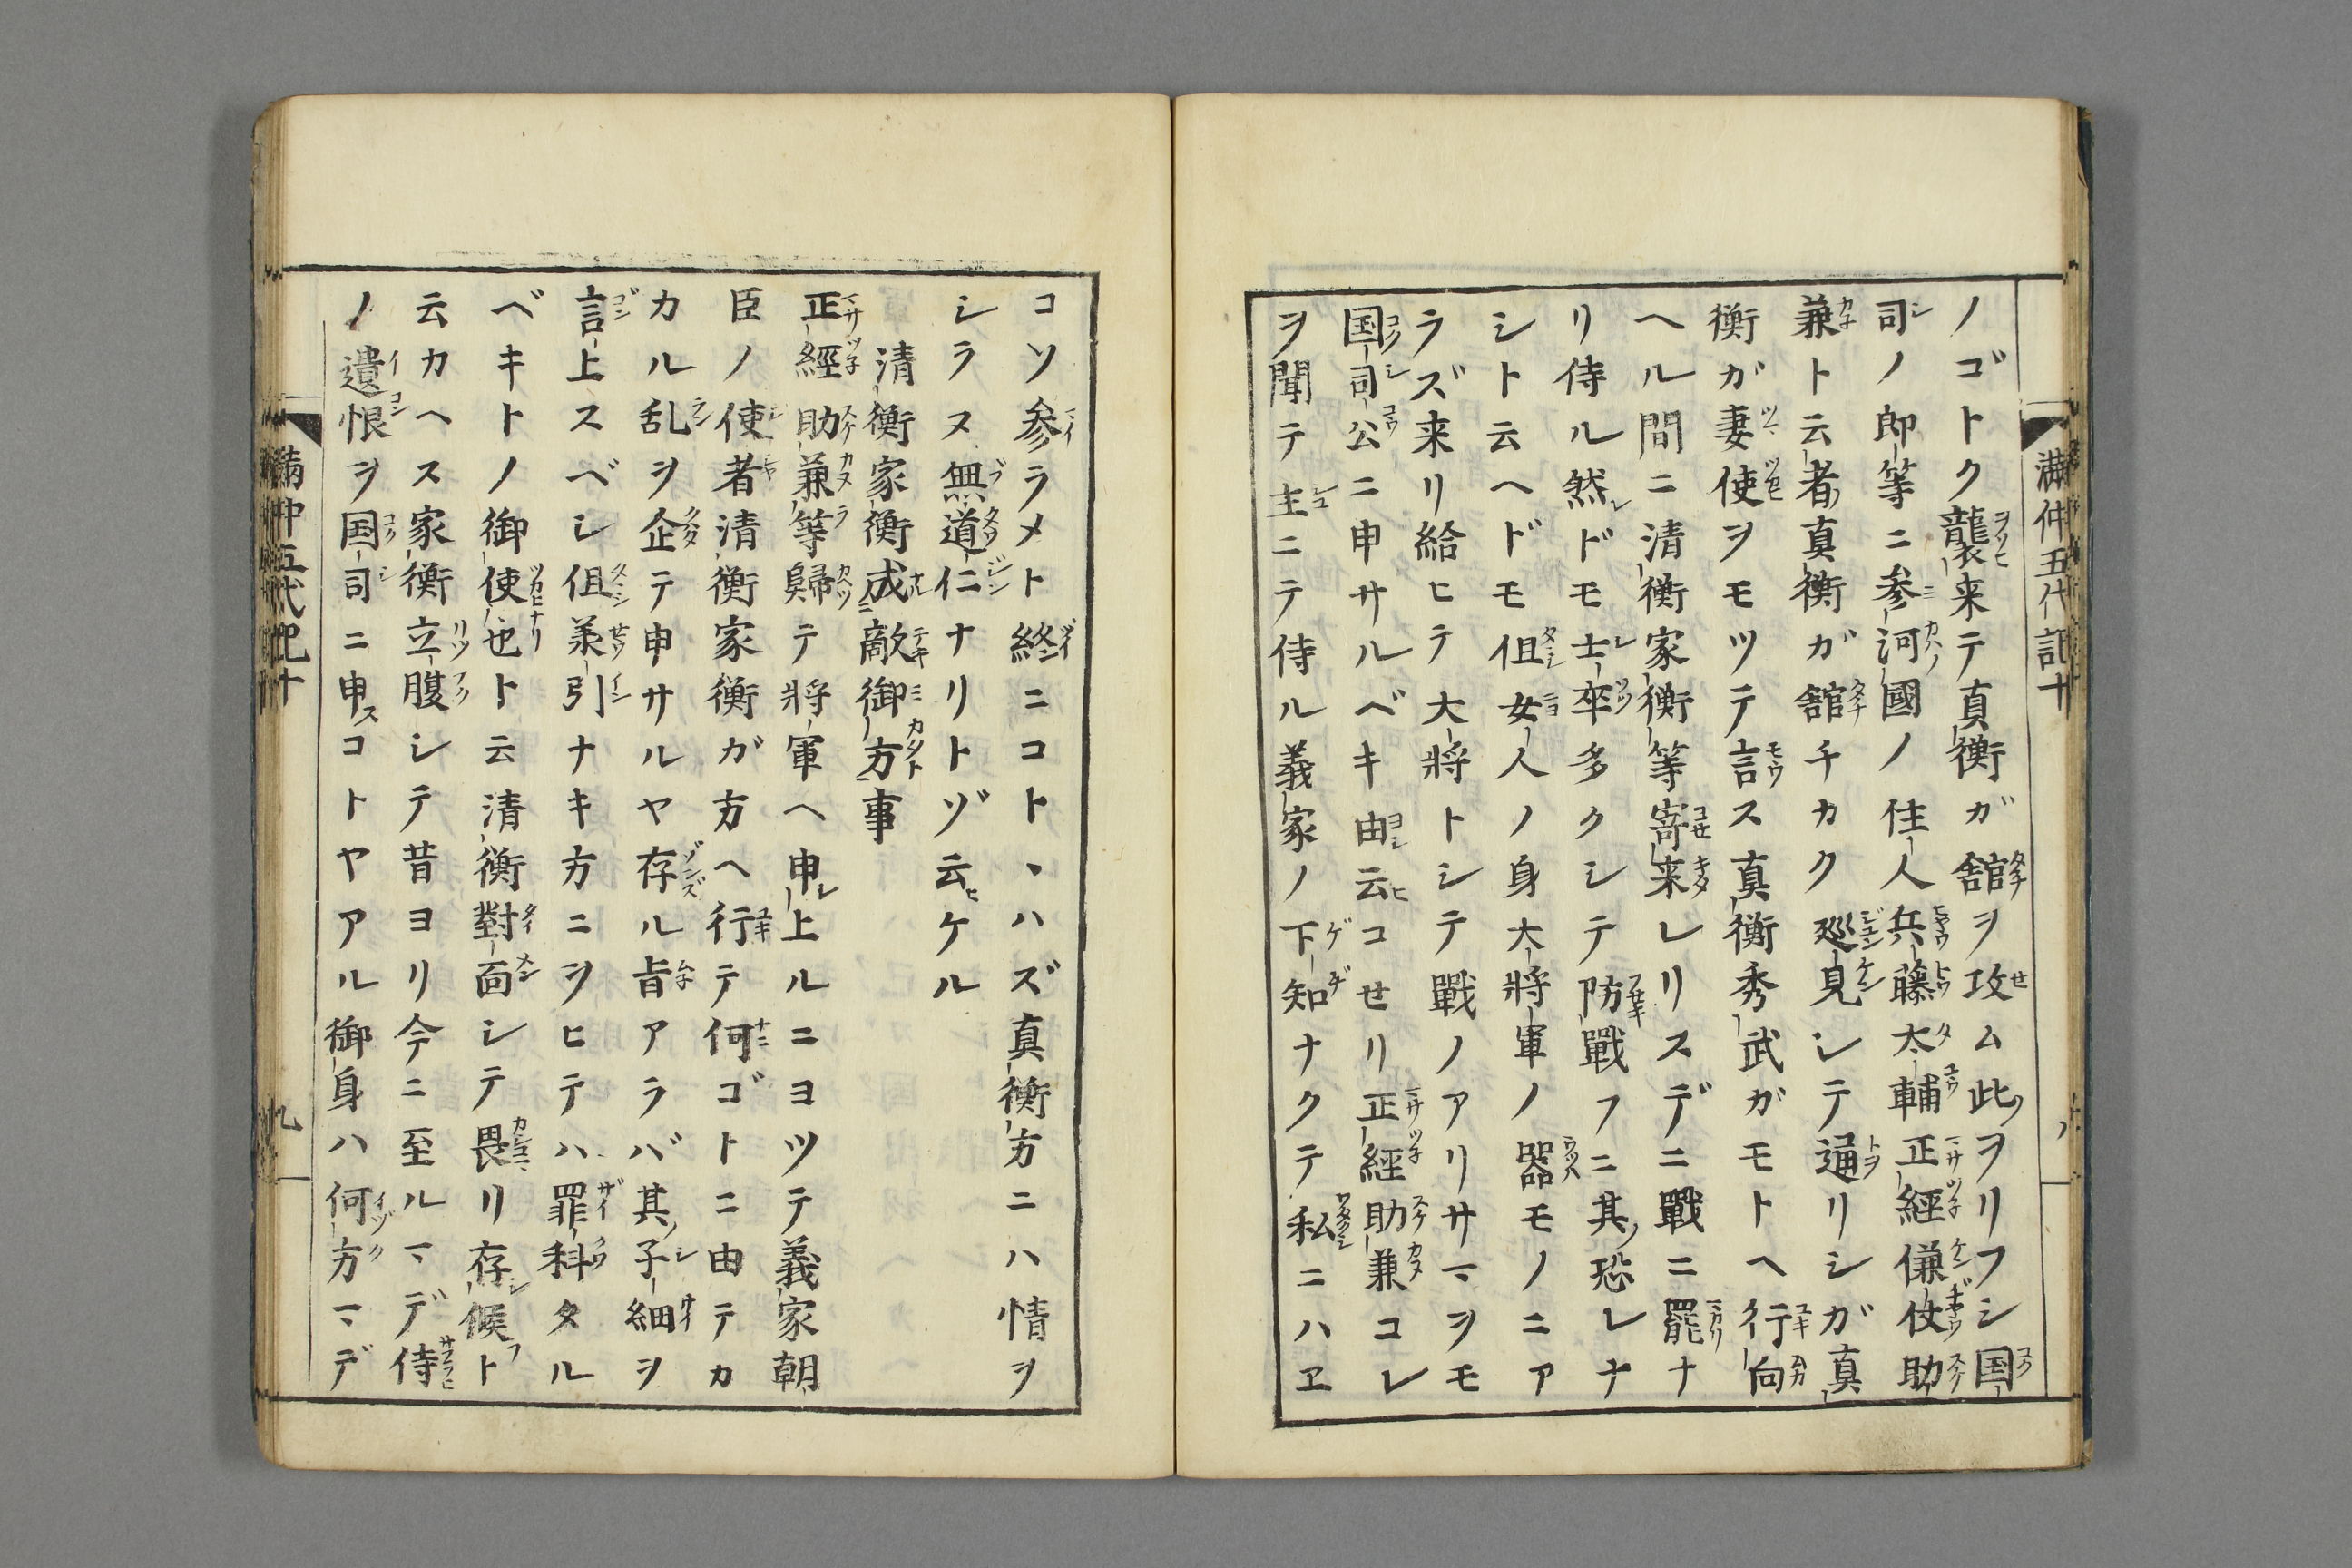 満仲五代記十
八
ノゴトク襲来テ真衡ガ舘ヲ攻ム此ヲリフシ国
司ノ郎等ニ参河國ノ住人兵藤太輔正經傔仗助
兼ト云者真衡ガ舘チカク廵見シテ通リシガ真
衡ガ妻使ヲモツテ言ス真衡秀武ガモトヘ行向
ヘル間ニ清衡家衡等寄来レリスデニ戰ニ罷ナ
リ侍ル然ドモ士卒多クシテ防戰フニ其恐レナ
シト云ヘドモ伹女人ノ身大將軍ノ器モノニア
ラズ来リ給ヒテ大將トシテ戰ノアリサマヲモ
国司公ニ申サルベキ由云コセリ正經助兼コレ
ヲ聞テ主ニテ侍ル義家ノ下知ナクテ私ニハヱ
コソ参ラメト終ニコトヽハズ真衡方ニハ情ヲ
シラヌ無道仁ナリトゾ云ケル
清衡家衡成敵御方事
正經助兼等歸テ將軍ヘ申上ルニヨツテ義家朝
臣ノ使者清衡家衡ガ方ヘ行テ何ゴトニ由テカ
カル乱ヲ企テ申サルヤ存ル旨アラバ其子細ヲ
言上スベシ伹羕引ナキ方ニヲヒテハ罪科タル
ベキトノ御使也ト云清衡對面シテ畏リ存候ト
云カヘス家衡立腹シテ昔ヨリ今ニ至ルマデ侍
ノ遺恨ヲ国司ニ申スコトヤアル御身ハ何方マデ
満仲五代記十
九